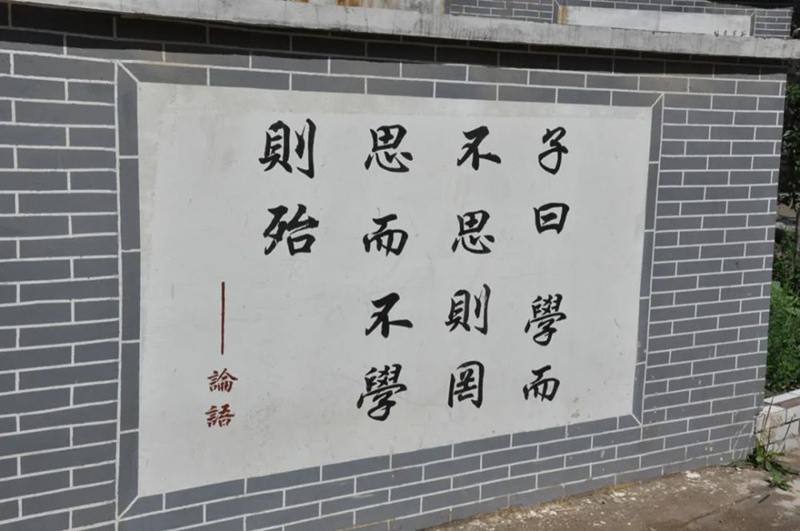 子曰學而
不思則罔
思而不學
則殆
——論語